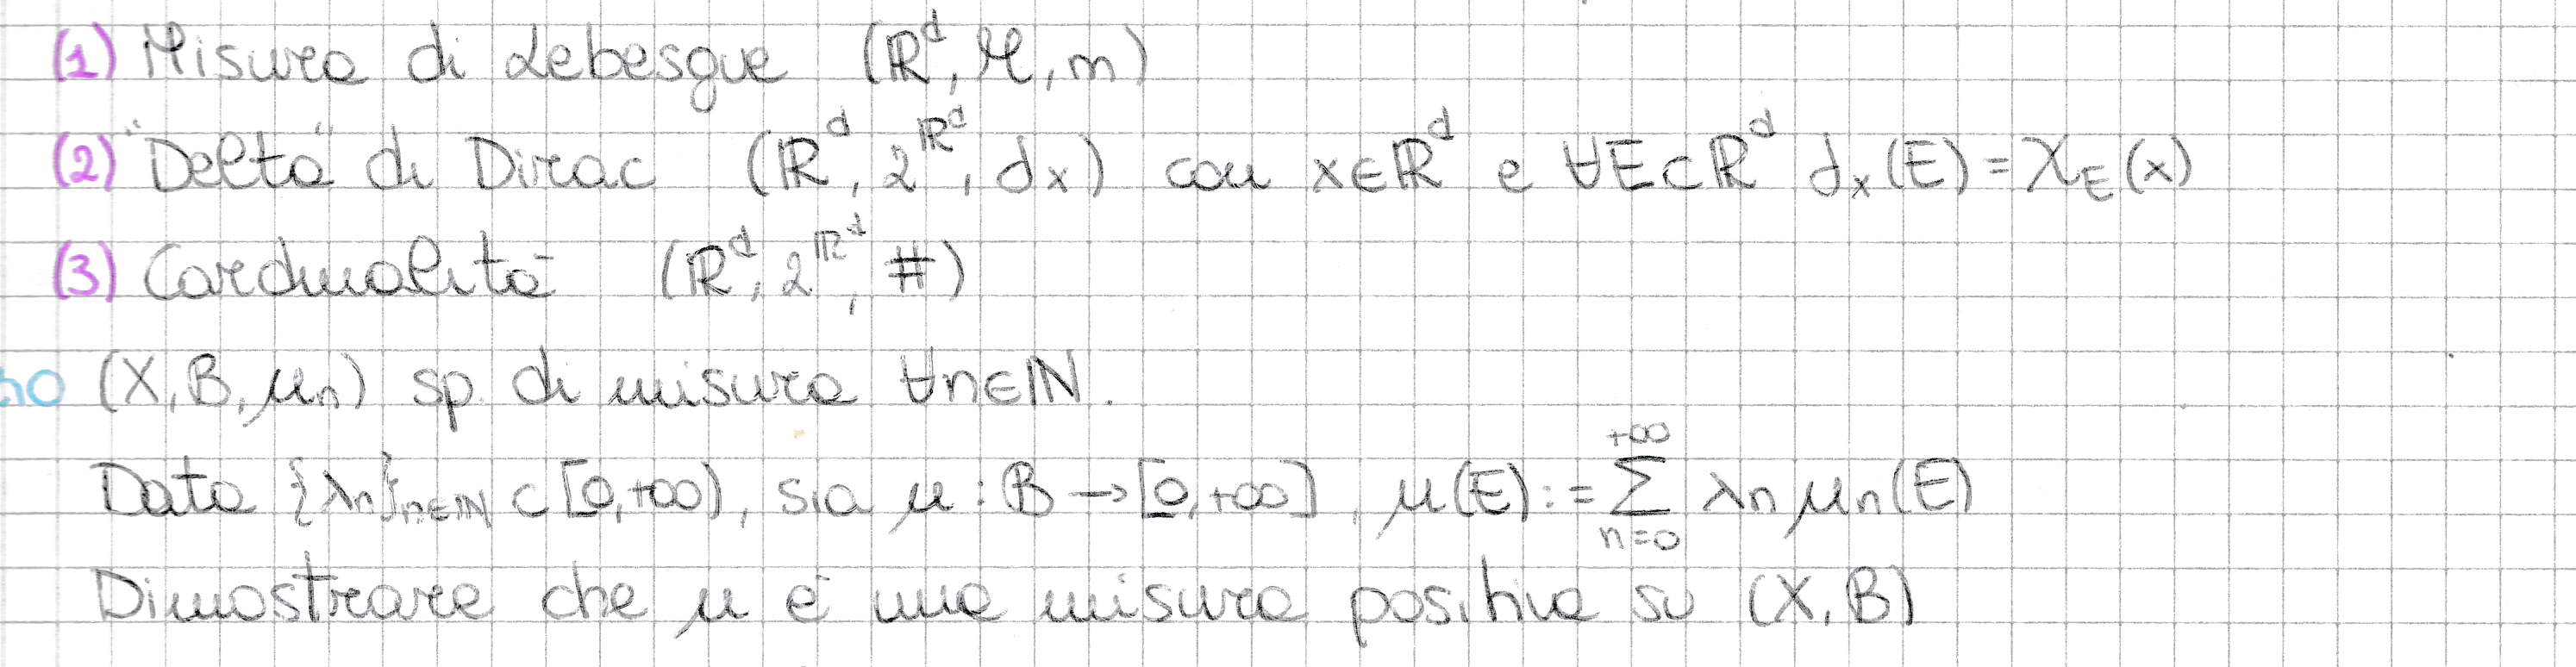 (1) Misura di Lebesgue (ℝᵈ, ℳ, m)
(2) "Delta" di Dirac (ℝᵈ, 2^ℝᵈ, δₓ) con x∈ℝᵈ e ∀E⊂ℝᵈ δₓ(E)=χ_E(x)
(3) Cardinalità (ℝᵈ, 2^ℝᵈ, #)
no (X, B, μₙ) sp. di misura ∀n∈ℕ.
Data {λₙ}ₙ∈ℕ ⊂ [0,+∞), sia μ : B → [0,+∞], μ(E) := ∑_{n=0}^{+∞} λₙ μₙ(E)
Dimostrare che μ è una misura positiva su (X, B)